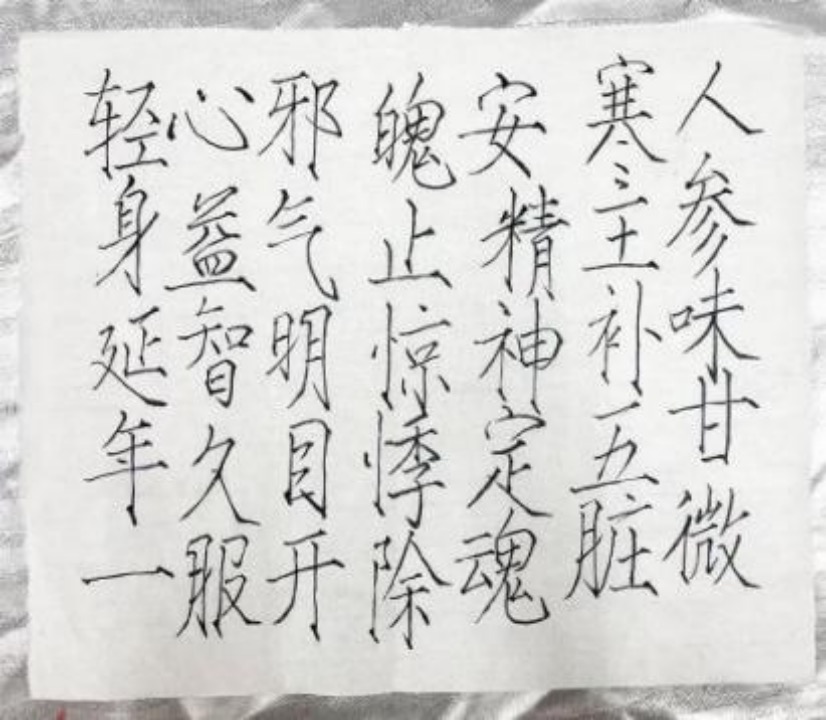 人参味甘微
寒主补五脏
安精神定魂
魄止惊悸除
邪气明目开
心益智久服
轻身延年一